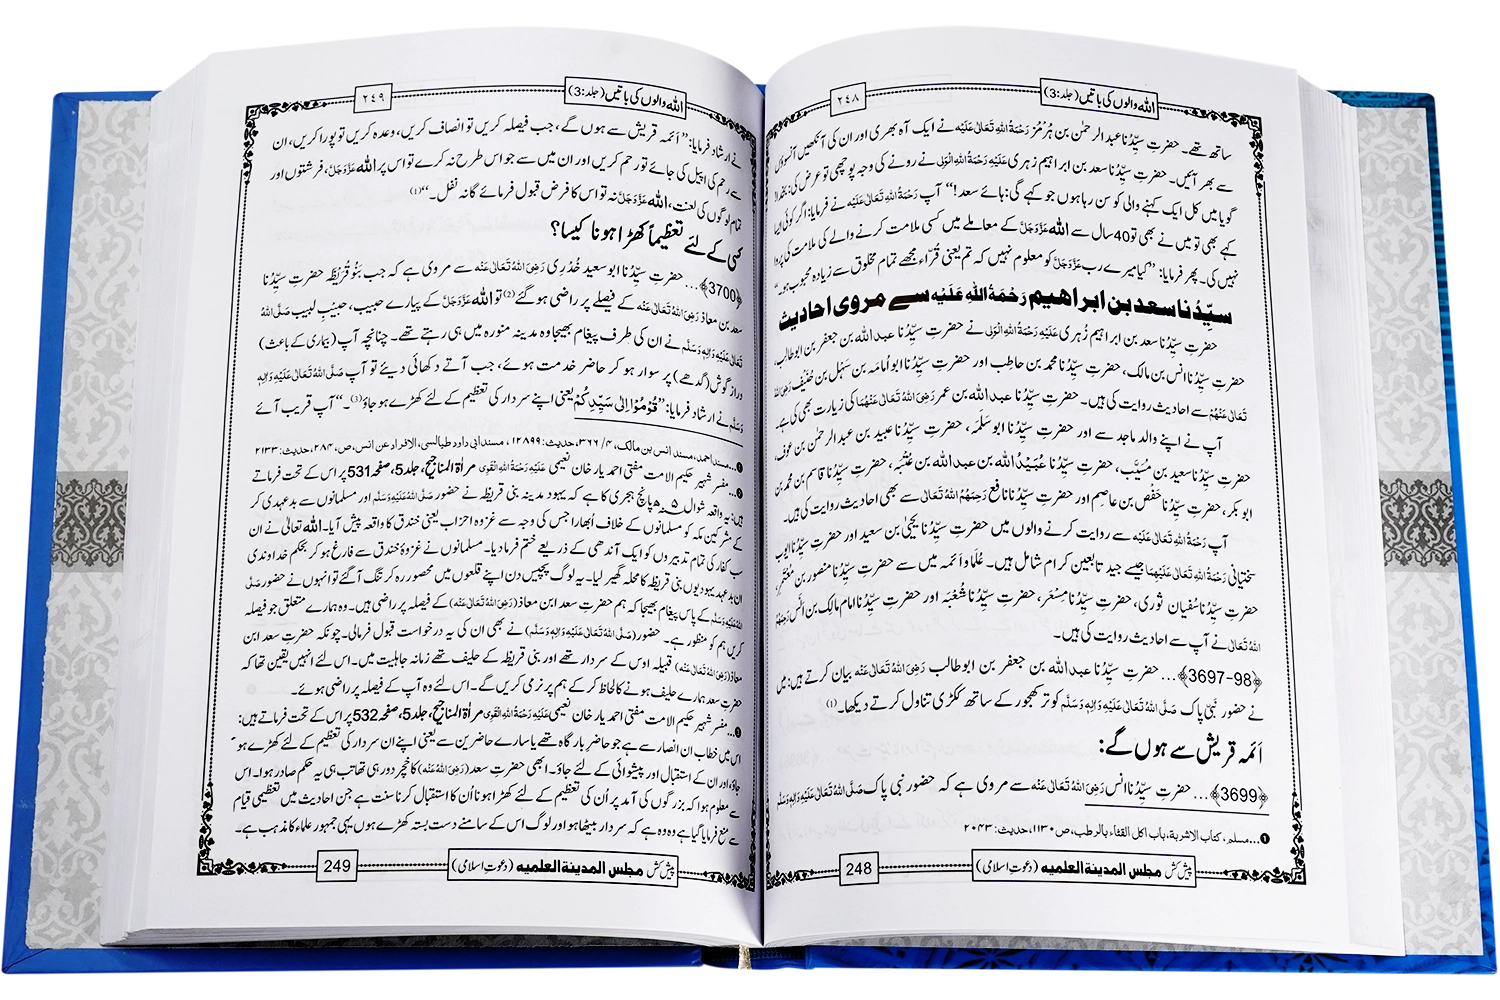 اللہ والوں کی باتیں (جلد:3)
۲۴۸
ساتھ تھے۔ حضرتِ سیِّدُنا عبد الرحمٰن بن ہُرمُز رَحْمَۃُ اللہِ تَعَالٰی عَلَیْہ نے ایک آہ بھری اور ان کی آنکھیں آنسوؤں
سے بھر آئیں۔ حضرتِ سیِّدُنا سعد بن ابراہیم زہری عَلَیْہِ رَحْمَۃُ اللہِ الْوَلِی نے رونے کی وجہ پوچھی تو عرض کی: بخدا!
گویا میں کل ایک کہنے والی کو سن رہا ہوں جو کہے گی: ہائے سعد!“ آپ رَحْمَۃُ اللہِ تَعَالٰی عَلَیْہ نے فرمایا: اگر کوئی ایسا
کہے بھی تو میں نے بھی تو 40 سال سے اللہ عَزَّوَجَلَّ کے معاملے میں کسی ملامت کرنے والے کی ملامت کی پروا
نہیں کی۔ پھر فرمایا: ”کیا میرے رب عَزَّوَجَلَّ کو معلوم نہیں کہ تم یعنی قُرّاء مجھے تمام مخلوق سے زیادہ محبوب ہو۔“
سیِّدُنا سعد بن ابراھیم رَحْمَۃُ اللہِ عَلَیْہ سے مروی احادیث
حضرتِ سیِّدُنا سعد بن ابراہیم زُہری عَلَیْہِ رَحْمَۃُ اللہِ الْوَلِی نے حضرتِ سیِّدُنا عبداللہ بن جعفر بن ابوطالب،
حضرتِ سیِّدُنا انس بن مالک، حضرتِ سیِّدُنا محمد بن حاطب اور حضرتِ سیِّدُنا ابو اُمامَہ بن سَہْل بن حُنَیْف رَضِیَ اللہُ
تَعَالٰی عَنْہُمْ سے احادیث روایت کی ہیں۔ حضرتِ سیِّدُنا عبداللہ بن عمر رَضِیَ اللہُ تَعَالٰی عَنْہُمَا کی زیارت بھی کی ہے۔
آپ نے اپنے والد ماجد سے اور حضرتِ سیِّدُنا ابو سَلَمَہ، حضرتِ سیِّدُنا عبید بن عبد الرحمٰن بن عوف،
حضرتِ سیِّدُنا سعید بن مُسَیَّب، حضرتِ سیِّدُنا عُبَیْدُاللہ بن عبداللہ بن عُتْبَہ، حضرتِ سیِّدُنا قاسم بن محمد بن
ابو بکر، حضرتِ سیِّدُنا حَفْص بن عاصِم اور حضرتِ سیِّدُنا نافع رَحِمَہُمُ اللہُ تَعَالٰی سے بھی احادیث روایت کی ہیں۔
آپ رَحْمَۃُ اللہِ تَعَالٰی عَلَیْہ سے روایت کرنے والوں میں حضرتِ سیِّدُنا یحییٰ بن سعید اور حضرتِ سیِّدُنا ایوب
سختیانی رَحْمَۃُ اللہِ تَعَالٰی عَلَیْہِمَا جیسے جید تابعین کرام شامل ہیں۔ عُلَما و اَئمہ میں سے حضرتِ سیِّدُنا منصور بن مُعْتَمِر،
حضرتِ سیِّدُنا سُفیان ثوری، حضرتِ سیِّدُنا مِسْعَر، حضرتِ سیِّدُنا شُعْبَہ اور حضرتِ سیِّدُنا امام مالِک بن انس رَحِمَہُمُ
اللہُ تَعَالٰی نے آپ سے احادیث روایت کی ہیں۔
﴿3697-98﴾… حضرتِ سیِّدُنا عبداللہ بن جعفر بن ابوطالب رَضِیَ اللہُ تَعَالٰی عَنْہ بیان کرتے ہیں: میں
نے حضور نبیِّ پاک صَلَّی اللہُ تَعَالٰی عَلَیْہِ وَاٰلِہٖ وَسَلَّم کو تر کھجور کے ساتھ ککڑی تناول کرتے دیکھا۔(۱)
اَئمہ قریش سے ہوں گے:
﴿3699﴾… حضرتِ سیِّدُنا انس رَضِیَ اللہُ تَعَالٰی عَنْہ سے مروی ہے کہ حضور نبی پاک صَلَّی اللہُ تَعَالٰی عَلَیْہِ وَاٰلِہٖ وَسَلَّم
❶…مسلم، کتاب الاشربۃ، باب اکل القثاء بالرطب، ص۱۱۳۰، حدیث: ۲۰۴۳
پیش کش مجلس المدینۃ العلمیہ (دعوتِ اسلامی)
248
اللہ والوں کی باتیں (جلد:3)
۲۴۹
نے ارشاد فرمایا: ”اَئمہ قریش سے ہوں گے، جب فیصلہ کریں تو انصاف کریں، وعدہ کریں تو پورا کریں، ان
سے رحم کی اپیل کی جائے تو رحم کریں اور ان میں سے جو اس طرح نہ کرے تو اس پر اللہ عَزَّوَجَلَّ، فرشتوں اور
تمام لوگوں کی لعنت، اللہ عَزَّوَجَلَّ نہ تو اس کا فرض قبول فرمائے گا نہ نفل۔“(۱)
کسی کے لئے تعظیماً کھڑا ہونا کیسا؟
﴿3700﴾… حضرتِ سیِّدُنا ابو سعید خُدْرِی رَضِیَ اللہُ تَعَالٰی عَنْہ سے مروی ہے کہ جب بَنُو قُرَیْظَہ حضرتِ سیِّدُنا
سعد بن معاذ رَضِیَ اللہُ تَعَالٰی عَنْہ کے فیصلے پر راضی ہو گئے(۲) تو اللہ عَزَّوَجَلَّ کے پیارے حبیب، حبیبِ لبیب صَلَّی اللہُ
تَعَالٰی عَلَیْہِ وَاٰلِہٖ وَسَلَّم نے ان کی طرف پیغام بھیجا وہ مدینہ منورہ میں ہی رہتے تھے۔ چنانچہ آپ (بیماری کے باعث)
دراز گوش (گدھے) پر سوار ہو کر حاضر خدمت ہوئے، جب آتے دکھائی دیئے تو آپ صَلَّی اللہُ تَعَالٰی عَلَیْہِ وَاٰلِہٖ
وَسَلَّم نے ارشاد فرمایا: ”قُوْمُوْا اِلٰی سَیِّدِکُمْ یعنی اپنے سردار کی تعظیم کے لئے کھڑے ہو جاؤ(۳)۔“ آپ قریب آئے
❶…مسند احمد، مسند انس بن مالک، ۴/ ۳۶۶، حدیث: ۱۲۸۹۹ ، مسند ابی داود طیالسی، الافراد عن انس، ص۲۸۴، حدیث: ۲۱۳۳
❷…مفسر شہیر حکیم الامت مفتی احمد یار خان نعیمی عَلَیْہِ رَحْمَۃُ اللہِ الْقَوِی مراٰۃ المناجیح، جلد5، صفحہ531 پر اس کے تحت فرماتے
ہیں: یہ واقعہ شوال ۵ھ پانچ ہجری کا ہے کہ یہود مدینہ بنی قریظہ نے حضور صَلَّی اللہُ عَلَیْہِ وَسَلَّم اور مسلمانوں سے بدعہدی کر
کے مشرکین مکہ کو مسلمانوں کے خلاف اُبھارا جس کی وجہ سے غزوہ احزاب یعنی خندق کا واقعہ پیش آیا۔ اللہ تعالیٰ نے ان
سب کفار کی تمام تدبیروں کو ایک آندھی کے ذریعے ختم فرما دیا۔ مسلمانوں نے غزوۂ خندق سے فارغ ہو کر بحکم خداوندی
ان بدعہد یہودیوں بنی قریظہ کا محلہ گھیر لیا۔ یہ لوگ پچیس دن اپنے قلعوں میں محصور رہ کر تنگ آگئے تو انہوں نے حضور صَلَّی
اللہُ عَلَیْہِ وَسَلَّم کے پاس پیغام بھیجا کہ ہم حضرتِ سعد ابن معاذ (رَضِیَ اللہُ تَعَالٰی عَنْہ) کے فیصلہ پر راضی ہیں۔ وہ ہمارے متعلق جو فیصلہ
کریں ہم کو منظور ہے۔ حضور (صَلَّی اللہُ تَعَالٰی عَلَیْہِ وَسَلَّم) نے بھی ان کی یہ درخواست قبول فرمالی۔ چونکہ حضرتِ سعد ابن
معاذ (رَضِیَ اللہُ تَعَالٰی عَنْہ) قبیلہ اوس کے سردار تھے اور بنی قریظہ کے حلیف تھے زمانہ جاہلیت میں۔ اس لئے انہیں یقین تھا کہ
حضرتِ سعد ہمارے حلیف ہونے کا لحاظ کر کے ہم پر نرمی کریں گے۔ اس لئے وہ آپ کے فیصلہ پر راضی ہوئے۔
❸…مفسر شہیر حکیم الامت مفتی احمد یار خان نعیمی عَلَیْہِ رَحْمَۃُ اللہِ الْقَوِی مراٰۃ المناجیح، جلد5، صفحہ532 پر اس کے تحت فرماتے ہیں:
اس میں خطاب ان انصار سے ہے جو حاضر بارگاہ تھے یا سارے حاضرین سے یعنی اپنے ان سردار کی تعظیم کے لئے کھڑے ہو
جاؤ اور ان کے استقبال اور پیشوائی کے لئے جاؤ۔ ابھی حضرت سعد (رَضِیَ اللہُ عَنْہ) کا خچر دور ہی تھا تب ہی یہ حکم صادر ہوا۔ اس
سے معلوم ہوا کہ بزرگوں کی آمد پر اُن کی تعظیم کے لئے کھڑا ہونا اُن کا استقبال کرنا سنت ہے جن احادیث میں تعظیمی قیام
سے منع فرمایا گیا ہے وہ وہ ہے کہ سردار بیٹھا ہو اور لوگ اس کے سامنے دست بستہ کھڑے ہوں یہی جمہور علماء کا مذہب ہے۔
پیش کش مجلس المدینۃ العلمیہ (دعوتِ اسلامی)
249